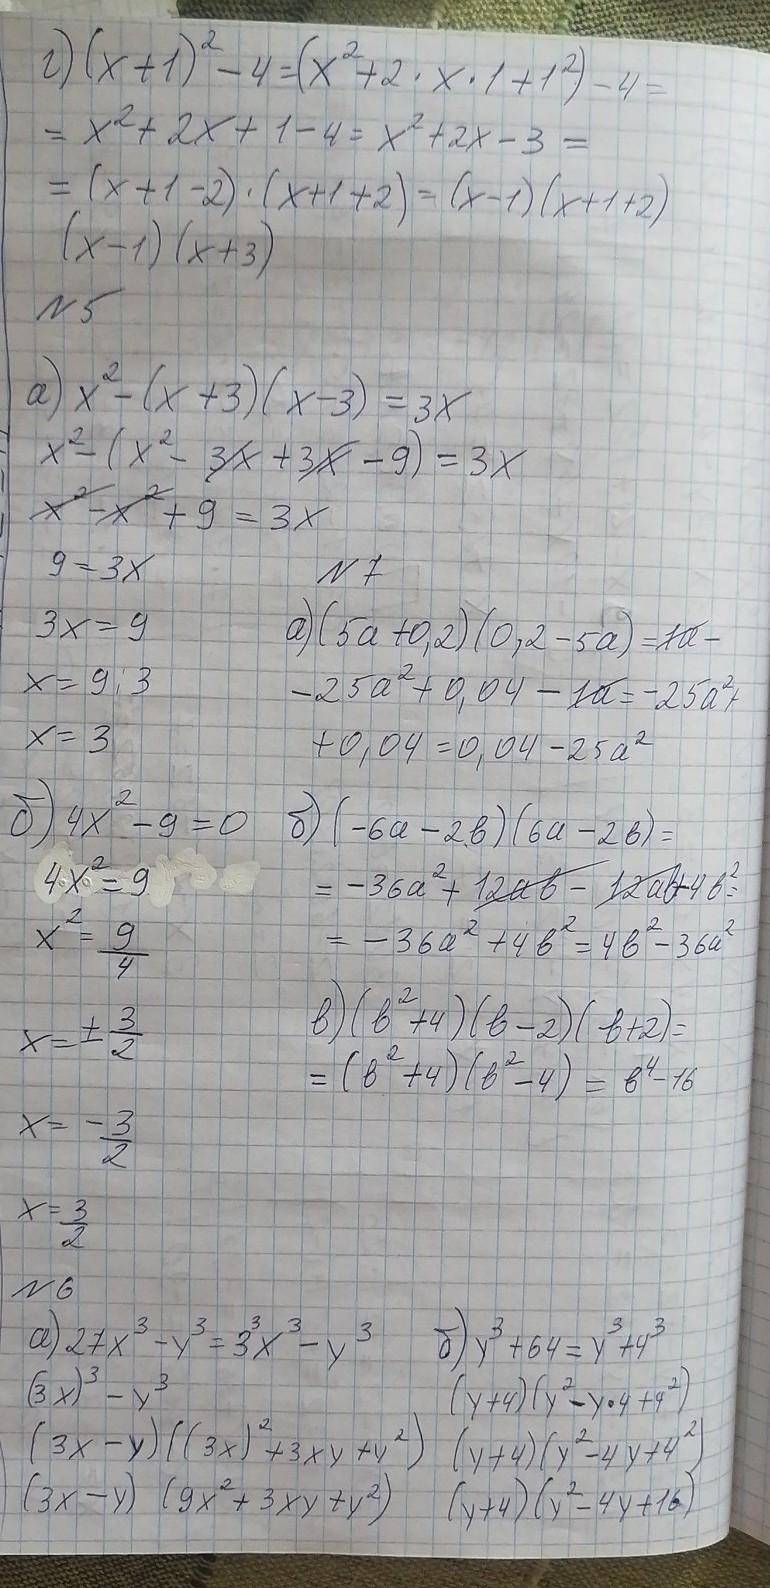 г) (x+1)² - 4 = (x² + 2·x·1 + 1²) - 4 =
= x² + 2x + 1 - 4 = x² + 2x - 3 =
= (x+1-2)·(x+1+2) = (x-1)(x+1+2)
(x-1)(x+3)
№5
а) x² - (x+3)(x-3) = 3x
x² - (x² - 3x + 3x - 9) = 3x
x² - x² + 9 = 3x
9 = 3x
3x = 9
x = 9:3
x = 3
б) 4x² - 9 = 0
4x² = 9
x² = 9/4
x = ± 3/2
x = -3/2
x = 3/2
№7
а) (5a+0,2)(0,2-5a) = 1a -
- 25a² + 0,04 - 1a = -25a² +
+ 0,04 = 0,04 - 25a²
б) (-6a-2в)(6a-2в) =
= -36a² + 12aв - 12aв + 4в² =
= -36a² + 4в² = 4в² - 36a²
в) (в²+4)(в-2)(в+2) =
= (в²+4)(в²-4) = в⁴ - 16
№6
а) 27x³ - y³ = 3³x³ - y³
(3x)³ - y³
(3x-y)((3x)² + 3xy + y²)
(3x-y) (9x² + 3xy + y²)
б) y³ + 64 = y³ + 4³
(y+4)(y² - y·4 + 4²)
(y+4)(y² - 4y + 4²)
(y+4)(y² - 4y + 16)